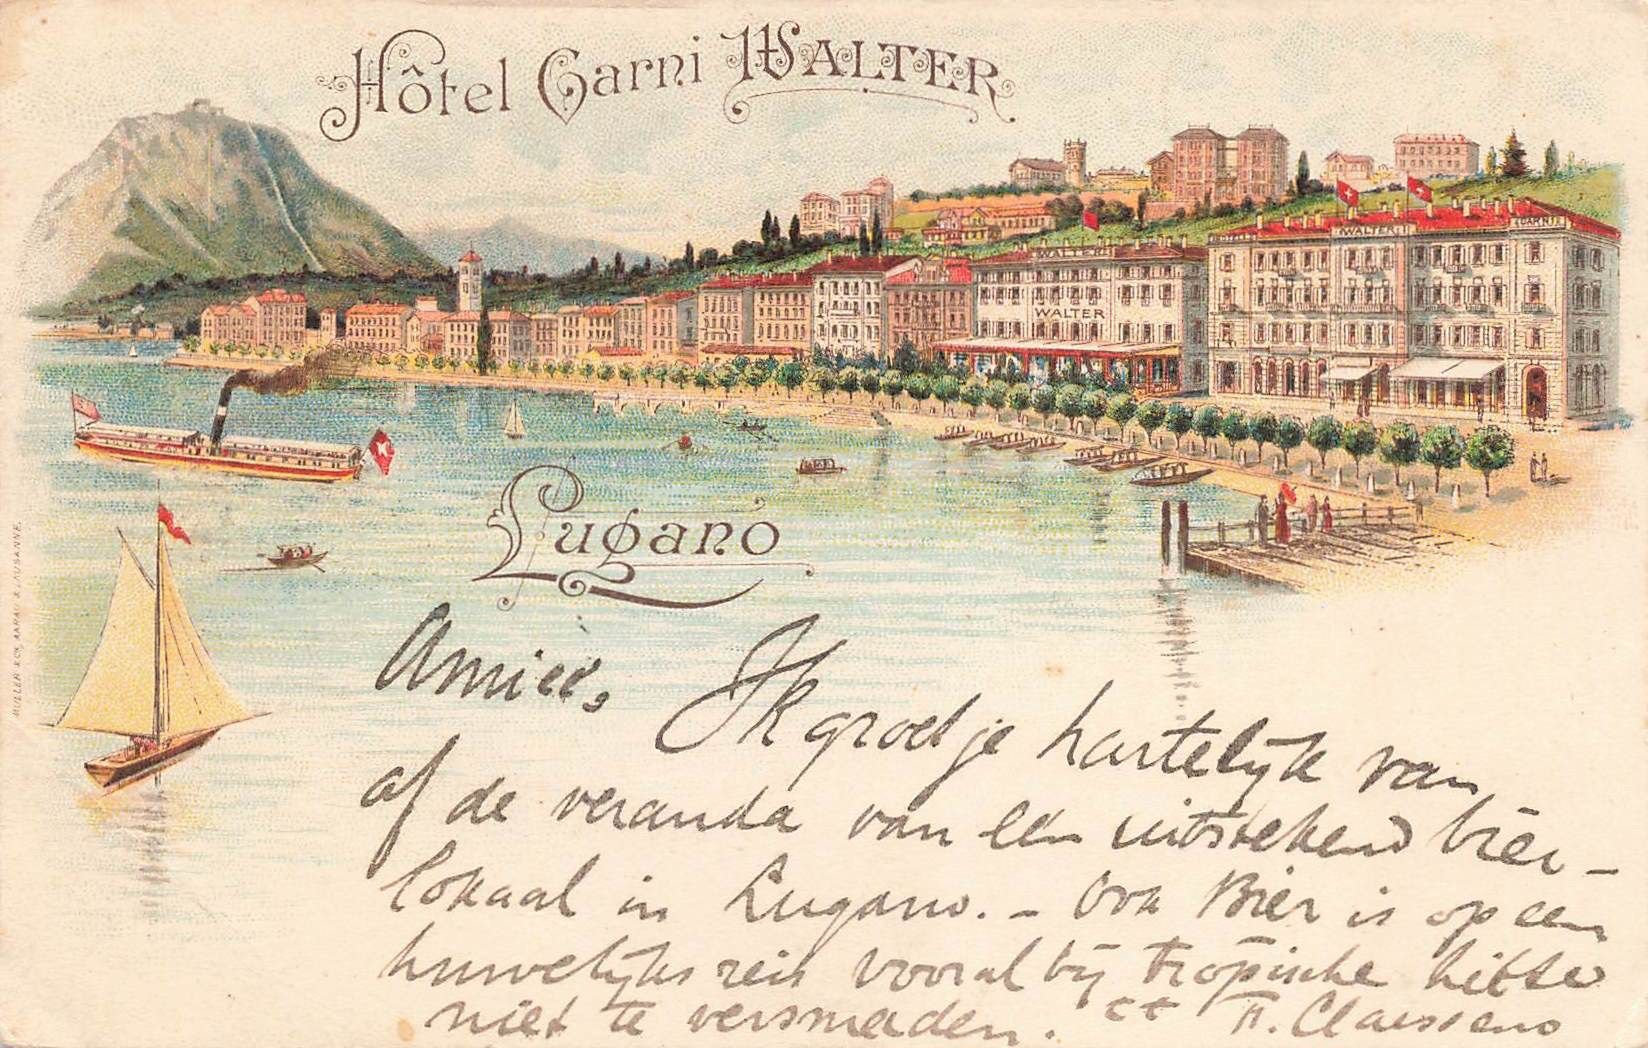 Hôtel Garni WALTER
HOTEL WALTER GARNI
WALTER
WALTER
Lugano
MÜLLER & CIE. AARAU & LAUSANNE.
Amice, Ik groet je hartelijk van
af de veranda van een uitstekend bier-
lokaal in Lugano. - Ook Bier is op een
huwelijksreis vooral bij tropische hitte
niet te versmaden. tt F. Claessens